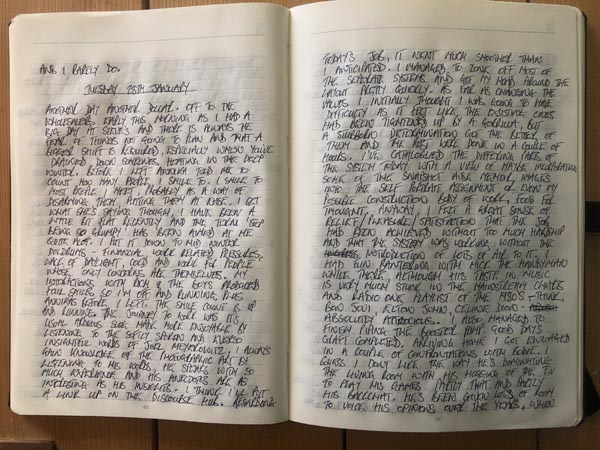 AND I RARELY DO.
TUESDAY 28TH JANUARY
ANOTHER DAY ANOTHER DOLLAR. OFF TO THE
WHOLESALERS EARLY THIS MORNING AS I HAD A
BIG DAY AT STEVES AND THERE IS ALWAYS THE
FEAR OF THINGS NOT GOING TO PLAN AND THAT A
BIGGER SHIFT IS REQUIRED, ESPECIALLY WHEN YOU'VE
DRAINED DOWN SOMEONES HEATING IN THE DEEP
WINTER. BEFORE I LEFT ANNIKA TOLD ME TO
COUNT HOW MANY PEOPLE I SMILE TO. I SMILE TO
MOST PEOPLE I MEET, LARGELY AS A WAY OF
DISARMING THEM, PUTTING THEM AT EASE. I GET
WHAT SHE'S SAYING THOUGH, I HAVE BEEN A
LITTLE BIT FLAT RECENTLY AND THE TERM 'STOP
BEING SO GRUMPY' HAS BEEN AIMED AT ME
QUITE A LOT. I PUT IT DOWN TO MID WINTER
DOLDRUMS - FINANCIAL WORK RELATED PRESSURES,
LACK OF DAYLIGHT, COLD AND WORK FOR PEOPLE
WHOSE ONLY CONCERNS ARE THEMSELVES. MY
INTERACTIONS WITH RICH & THE BOYS PRODUCED
FOUR SMILES SO I'M OFF AND RUNNING, PLUS
ANNIKAS BEFORE I LEFT THE SMILE COUNT IS UP
AND RUNNING. THE JOURNEY TO WORK WAS ITS
USUAL ARDUOUS SLOG MADE MORE ENJOYABLE BY
LISTENING TO THE SOFTLY SPOKEN AND
INSIGHTFUL WORDS OF JOEL MEYEROWITZ. I ALWAYS
GAIN KNOWLEDGE OF THE PHOTOGRAPHIC ART BY
LISTENING TO HIS WORDS, HE SPEAKS WITH SO
MUCH EXPERIENCE AND HIS ANECDOTES ARE AS
INTERESTING AS HIS INSIGHTS. I THINK I'LL PUT
A LINK UP ON THE DISCOURSE HUB. REGARDING
TODAY'S JOB, IT WENT MUCH SMOOTHER THAN
I ANTICIPATED. I MANAGED TO ZONE OFF MOST OF
THE SEPERATE SYSTEMS AND GOT MY HEAD AROUND THE
LAYOUT PRETTY QUICKLY. AS FAR AS CHANGING THE
VALVES I INITIALLY THOUGHT I WAS GOING TO HAVE
DIFFICULTY AS IT FELT LIKE THE EXISTING ONES
HAD BEEN TIGHTENED UP BY A GORILLA, BUT
A STUBBORN DETERMINATION GOT THE BETTER OF
THEM AND THE JOB WERE DONE IN A COUPLE OF
HOURS. I'VE CATALOGUED THE DIFFERING PARTS OF
THE SYSTEM TODAY WITH A VIEW OF MAYBE INCORPORATING
SOME OF THE SNAPSHOT AIDE MEMOIR IMAGES
INTO THE SELF PORTRAIT ASSIGNMENT OR EVEN MY
POSSIBLE CONSTRUCTION BODY OF WORK, FOOD FOR
THOUGHT. ANYWAY, I FELT A GREAT SENSE OF
RELIEF/PLEASURE/SATISFACTION THAT THE JOB
HAD BEEN ACHIEVED WITHOUT TOO MUCH HARDSHIP
AND THAT THE SYSTEM WAS WORKING WITHOUT THE
INTRODUCTION OF LOTS OF AIR TO IT. I
HAD FUN BANTERING WITH MICK THE HANDYMAN
WHILE THERE, ALTHOUGH HIS TASTE IN MUSIC
IS VERY MUCH STUCK IN THE MAINSTREAM CHARTS
AND RADIO ONE PLAYLIST OF THE 1980'S - THINK,
BON JOVI, ELTON JOHN, CELINE DION
ABSOLUTELY ATROCIOUS. I ALSO MANAGED TO
FINISH PIPING THE BOOSTER PUMP. GOOD DAYS
GRAFT COMPLETED. ARRIVING HOME I GOT ENGAGED
IN A COUPLE OF CONFRONTATIONS WITH EDDIE. I
GUESS I DON'T LIKE THE WAY HE'S DOMINATING
THE LIVING ROOM WITH HIS HOGGING OF THE T.V
TO PLAY HIS GAMES. PARTLY THAT AND PARTLY
HIS BACKCHAT. HE'S BEEN GIVEN LOTS OF ROOM
TO VOICE HIS OPINIONS OVER THE YEARS, WHEN